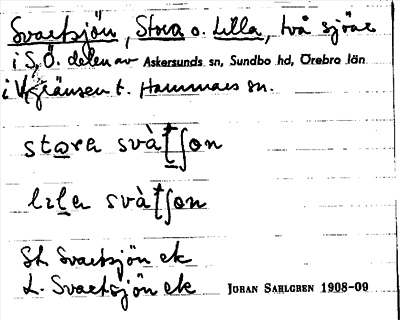 Svartsjön, Stora o. Lilla, två sjöar
i S. Ö. delen av Askersunds sn, Sundbo hd, Örebro län
i gränsen t. Hammars sn.
stora svàʈʃon
lila svàʈʃon
St. Svartsjön ek
L. Svartsjön ek JÖRAN SAHLGREN 1908-09